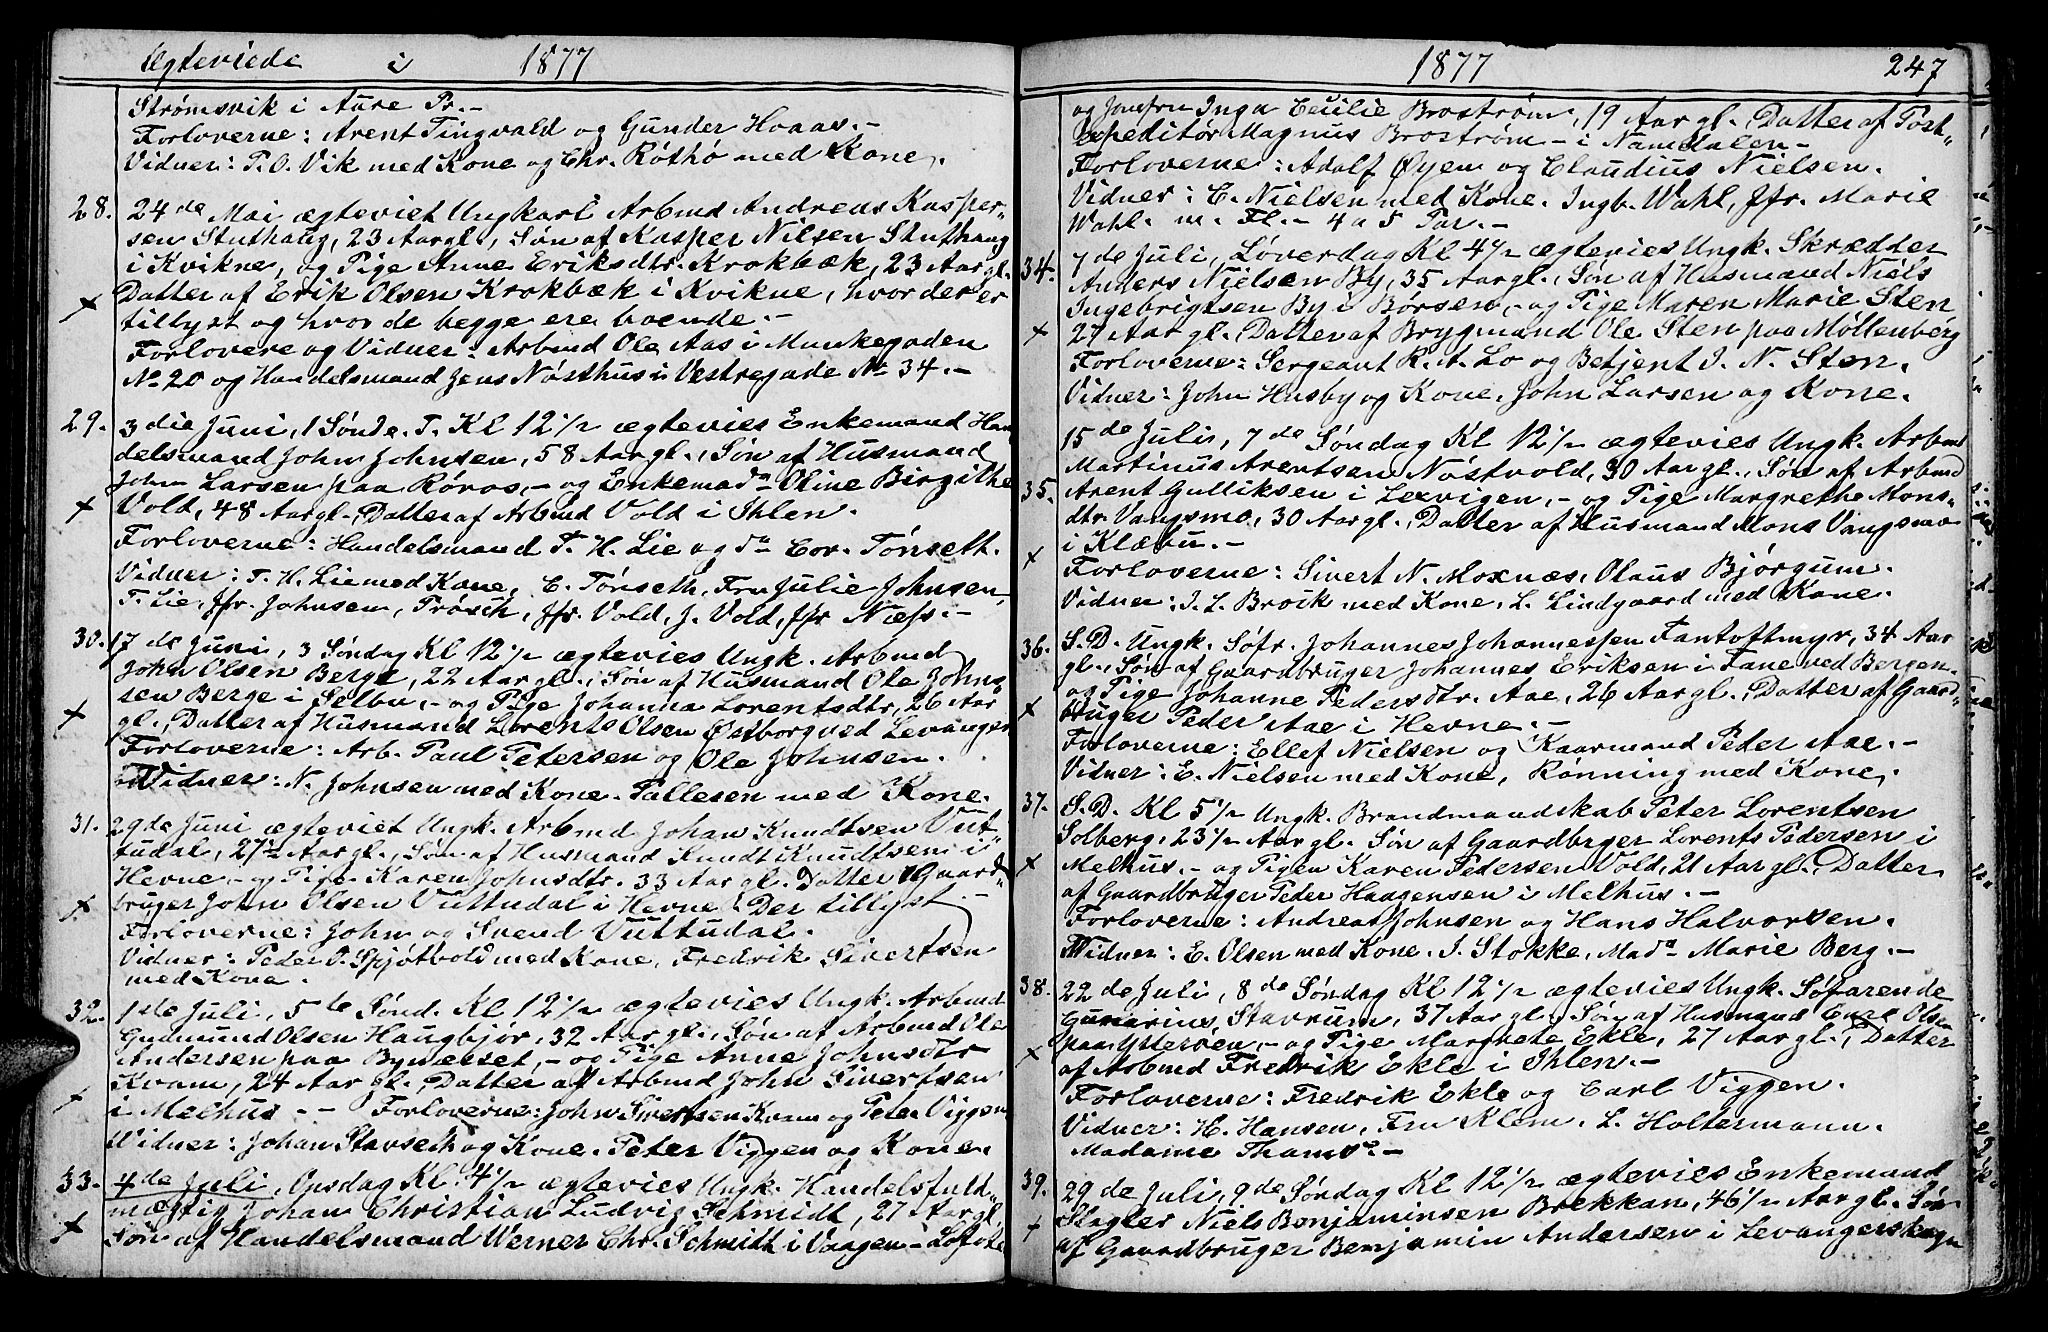 Ægteviede i 1877
Strømsvik i Aure Pr.-
Forloverne: Arent Tingvald og Gunder Hoaas.-
Vidner: P. O. Vik med Kone og Chr. Röthö med Kone.
28. 24de Mai ægteviet Ungkarl Arbmd Andreas Kasper-
sen Stuthaug, 23 Aar gl., Søn af Kasper Nilsen Stuthaug
i Kvikne, og Pige Anne Eriksdtr. Krokbæk, 23 Aar gl.
Datter af Erik Olsen Krokbæk i Kvikne, hvor der er
tillyst og hvor de begge ere boende.-
Forlovere og Vidner: Arbmd Ole Aas i Munkegaden
No 20 og Handelsmand Jens Nösthus i Vestregade No 34.-
29. 3die Juni, 1 Sönd e. T. Kl 12 1/2 ægtevies Enkemand Han
delsmand John Johnsen, 58 Aar gl., Søn af Husmand
John Larsen paa Röros,- og Enkemada Oline Birgithe
Vold, 48 Aar gl., Datter af Arbmd Vold i Ihlen.
Forloverne: Handelsmand T. H. Lie og do Cor. Tönseth.
Vidner: T. H. Lie med Kone, C. Tönseth, Fru Julie Johnsen,
T. Lie, Jfr. Johnsen, Trösch, Jfr. Vold, J. Vold, Jfr Næss.-
30. 17de Juni, 3 Söndag Kl 12 1/2 ægtevies Ungk. Arbmd
John Olsen Berge, 22 Aar gl., Søn af Husmand Ole Johns-
sen Berge i Selbu,- og Pige Johanna Lorentsdtr, 26 Aar
gl., Datter af Husmand Lorents Olsen Østborg ved Levanger
Forloverne: Arb. Paul Petersen og Ole Johnsen.
Vidner: N. Johnsen med Kone. Pallesen med Kone.
31. 29de Juni ægteviet Ungk. Arbmd Johan Knudtsen Vut-
tudal, 27 1/2 Aar gl., Søn af Husmand Knudt Knudtsen i
Hevne,- og Pige Karen Johnsdtr. 33 Aar gl. Datter Gaard-
bruger John Olsen Vuttudal i Hevne. Der tillyst.-
Forloverne: John og Svend Vuttudal.
Vidner: Peder O. Spjötvold med Kone, Fredrik Sivertsen
med Kone.
32. 1de Juli, 5te Sönd. Kl 12 1/2 ægtevies Ungk. Arbmd
Gudmund Olsen Haugbjör, 32 Aar gl., Søn af Arbmd Ole
Andersen paa Bynæsset,- og Pige Anne Johnsdtr
Kvam, 24 Aar gl., Datter af Arbmd John Sivertsen
i Melhus.-- Forloverne: John Sivertsen Kvam og Peter Viggen
Vidner: Johan Stavseth og Kone. Peter Viggen og Kone.
33. 4de Juli, Onsdag Kl. 4 1/2 ægtevies Ungk. Handelsfuld-
mægtig Johan Christian Ludvig Schmidt, 27 Aar gl.
Søn af Handelsmand Werner Chr. Schmidt i Vaagen-Lofoten
1877 247
og Jomfru Inga Cecilie Broström, 19 Aar gl. Datter af Post-
expeditör Magnus Broström - i Namdalen.-
Forloverne: Adolf Øyem og Claudius Nielsen.
Vidner: C. Nielsen med Kone. Ingb. Wahl, Jfr. Marie
Wahl. m. Fl.- 4 a 5 Par.-
34. 7de Juli, Løverdag Kl 4 1/2 ægtevies Ungk. Skrædder
Anders Nielsen By, 35 Aar gl., Søn af Husmand Niels
Ingebrigtsen By i Börsen,- og Pige Maren Marie Sten
27 Aar gl., Datter af Brygmand Ole Sten paa Möllenberg
Forloverne: Sergeant R. A. Lo og Betjent I. N. Sten.
Vidner: John Husby og Kone, John Larsen og Kone.
35. 15de Juli, 7de Söndag Kl 12 1/2 ægtevies Ungk. Arbmd
Martinus Arentsen Nöstvold, 30 Aar gl., Søn af Arbmd
Arent Gulliksen i Lexvigen,- og Pige Margrethe Mons-
dtr. Vangsmo, 30 Aar gl., Datter af Husmand Mons Vangsmo
i Klæbu.-
Forloverne: Sivert N. Moxnæs, Olaus Bjørgum.
Vidner: I. L. Broik med Kone, L. Lindgaard med Kone.
36. S. D. Ungk. Söfr. Johannes Johannessen Fantoftmyr, 34 Aar
gl., Søn af Gaardbruger Johannes Eriksen i Fane ved Bergen-
og Pige Johanne Pedersdtr. Aae, 26 Aar gl., Datter af Gaard-
bruger Peder Aae i Hevne.-
Forloverne: Ellef Nielsen og Kaarmand Peder Aae.-
Vidner: E. Nielsen med Kone, Rönning med Kone.
37. S. D. Kl 5 1/2 Ungk. Brandmandskab Peter Lorentsen
Solberg, 23 1/2 Aar gl. Søn af Gaardbrger Lorents Pedersen i
Melhus.- og Pigen Karen Pedersen Vold, 21 Aar gl., Datter
af Gaardbruger Peder Haagensen i Melhus.-
Forloverne: Andreas Johnsen og Hans Halvorsen.
Vidner: E. Olsen med Kone. I. Stokke, Mada Marie Berg.-
38. 22de Juli, 8de Söndag Kl 12 1/2 ægtevies Ungk. Söfarende
Gunerius Stavrum, 37 Aar gl., Søn af Husmand Olsen
paa Ytterøen,- og Pige Margrete Ekle, 27 Aar gl., Datter
af Arbmd Fredrik Ekle i Ihlen.-
Forloverne: Fredrik Ekle og Carl Viggen.
Vidner: H. Hansen, Fru Klem. L. Holtermann.
Madame Thams.-
39. 29de Juli, 9de Söndag Kl 12 1/2 ægtevies Enkemand
Slagter Niels Benjaminsen Brekkan, 46 1/2 Aar gl. Søn
af Gaardbruger Benjamin Andersen i Levangerskogn